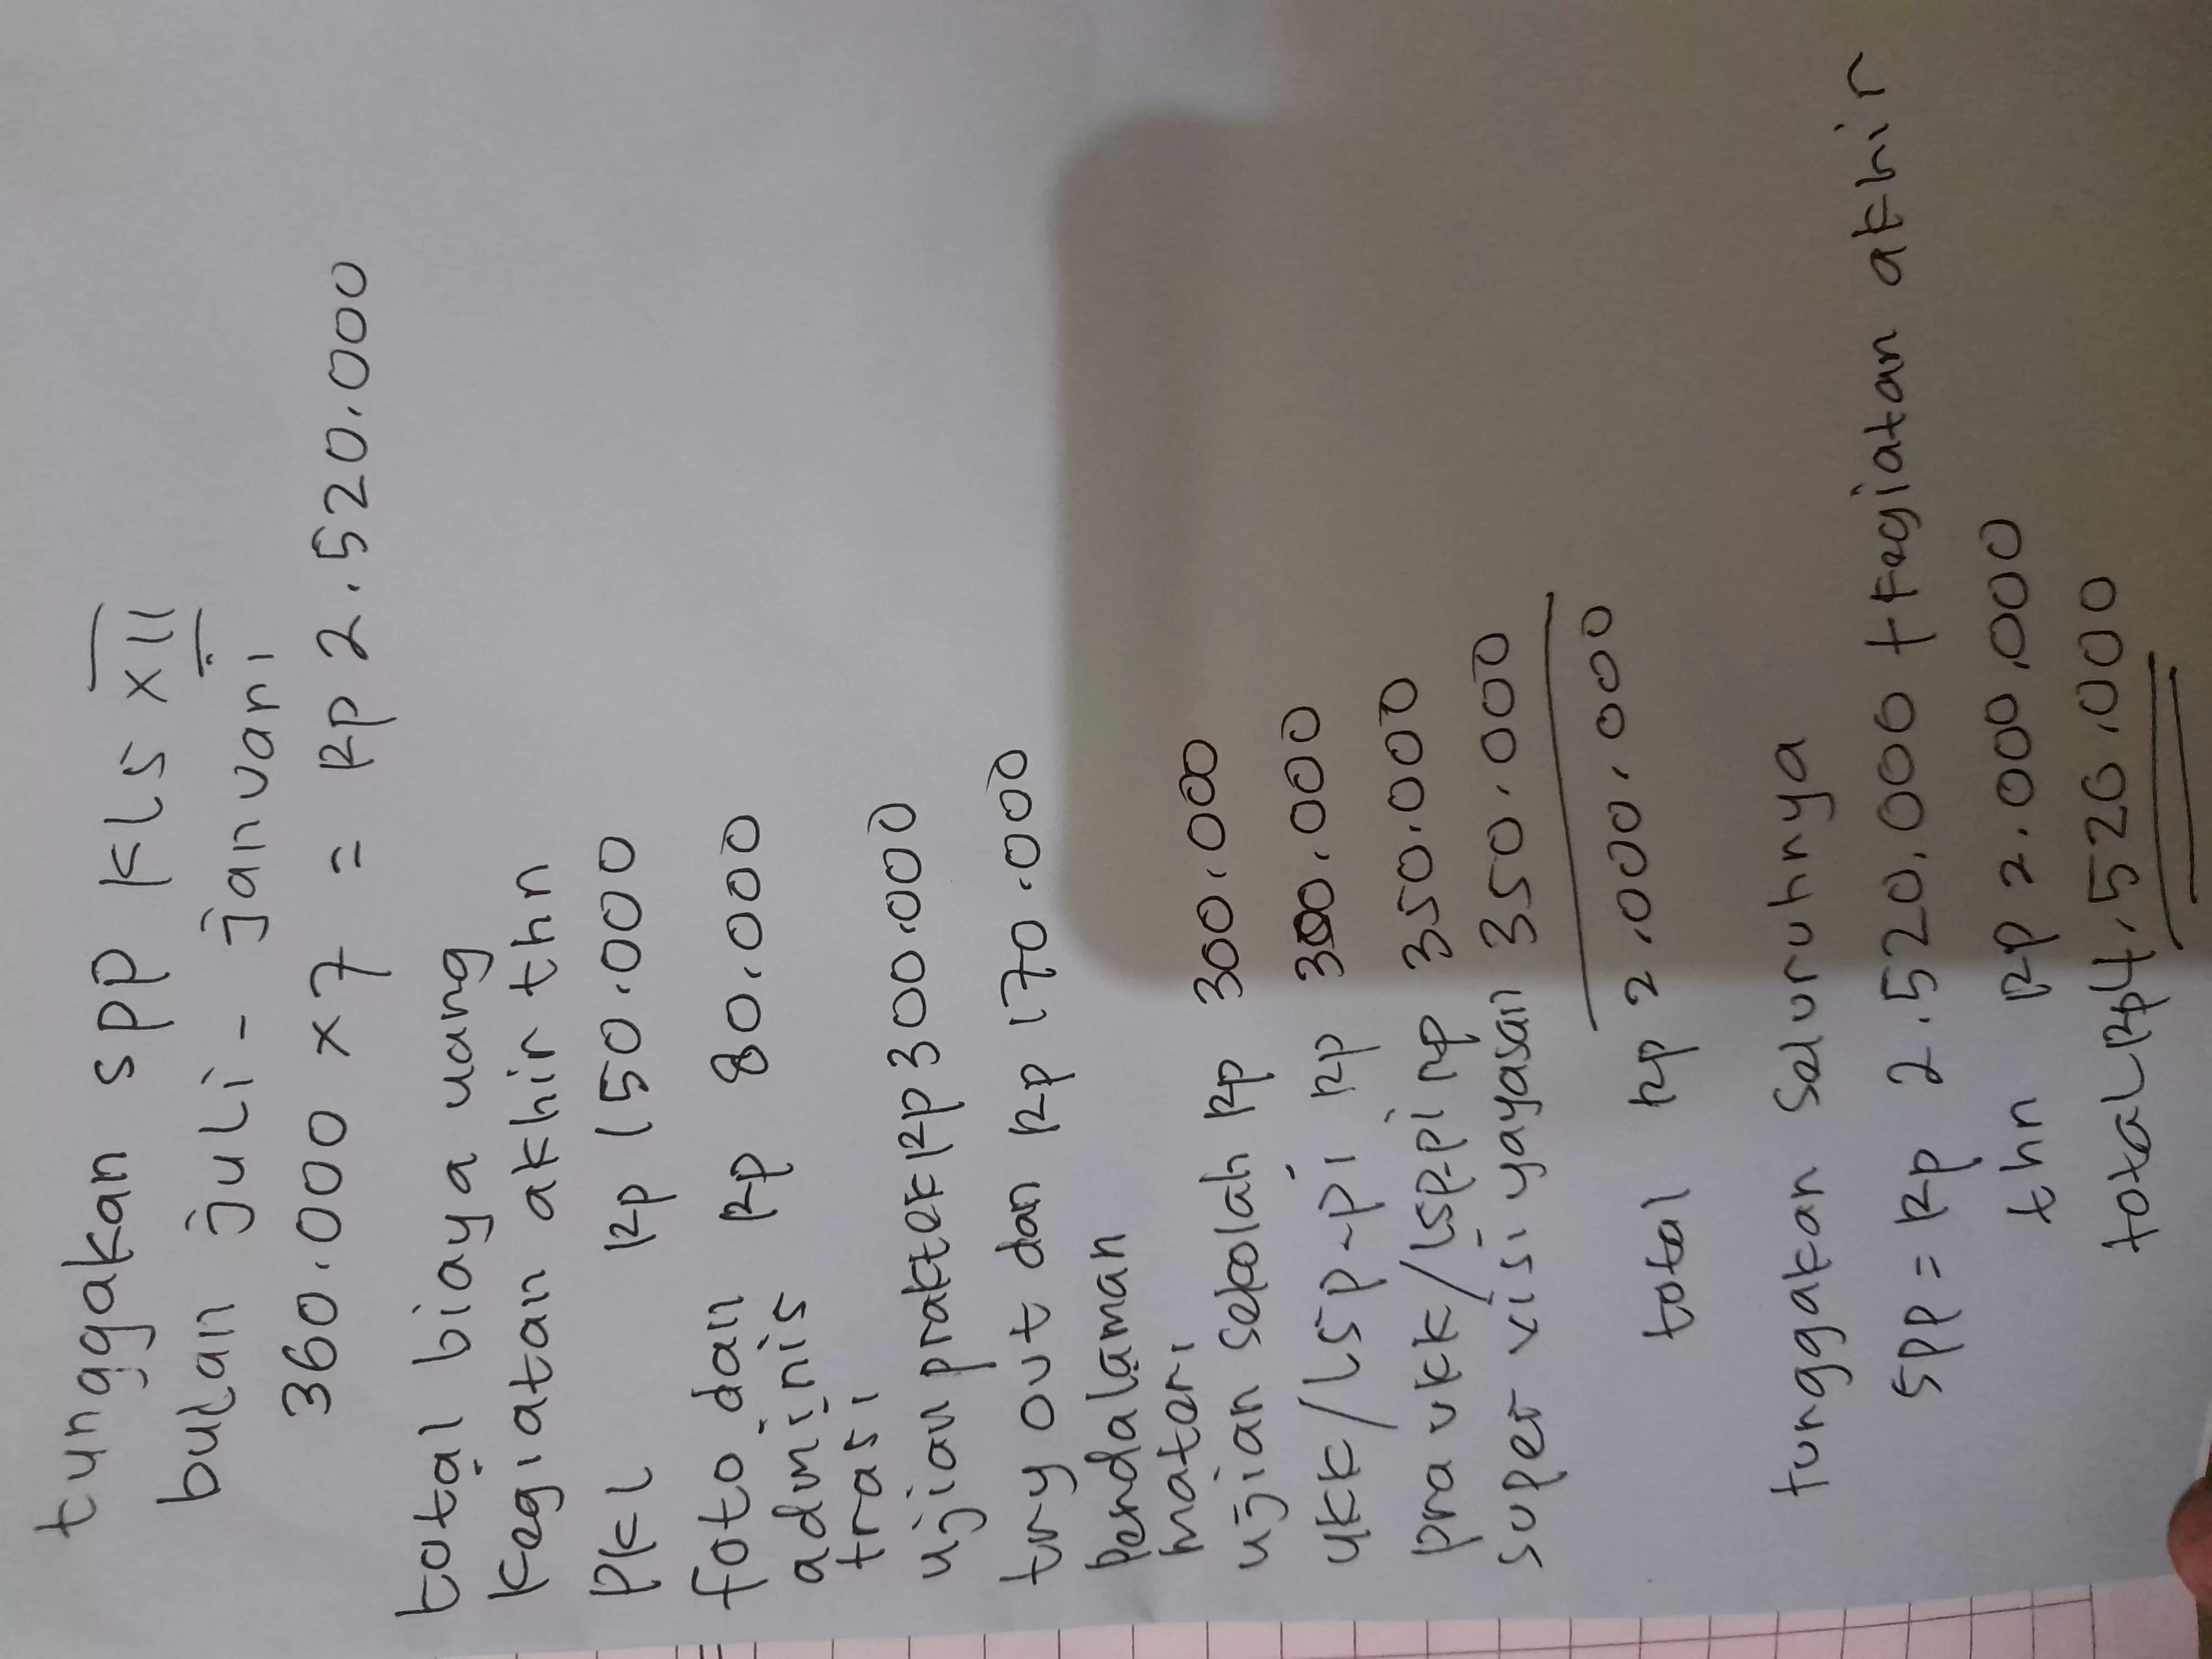 tunggakan spp kls XII
bulan juli - januari
360.000 x 7 = Rp 2.520.000
total biaya uang
kegiatan akhir thn
PKL Rp 150.000
foto dan Rp 80.000
adminis
trasi
ujian praktek Rp 300.000
try out dan Rp 170.000
pendalaman
materi
ujian sekolah Rp 300.000
ukk/LSP-pi Rp 300.000
pra ukk/LSP-pi Rp 350.000
super visi yayasan 350.000
total Rp 2.000.000
tunggakan seluruhnya
spp = Rp 2.520.000 + kegiatan akhir
thn Rp 2.000.000
total Rp 4.520.000